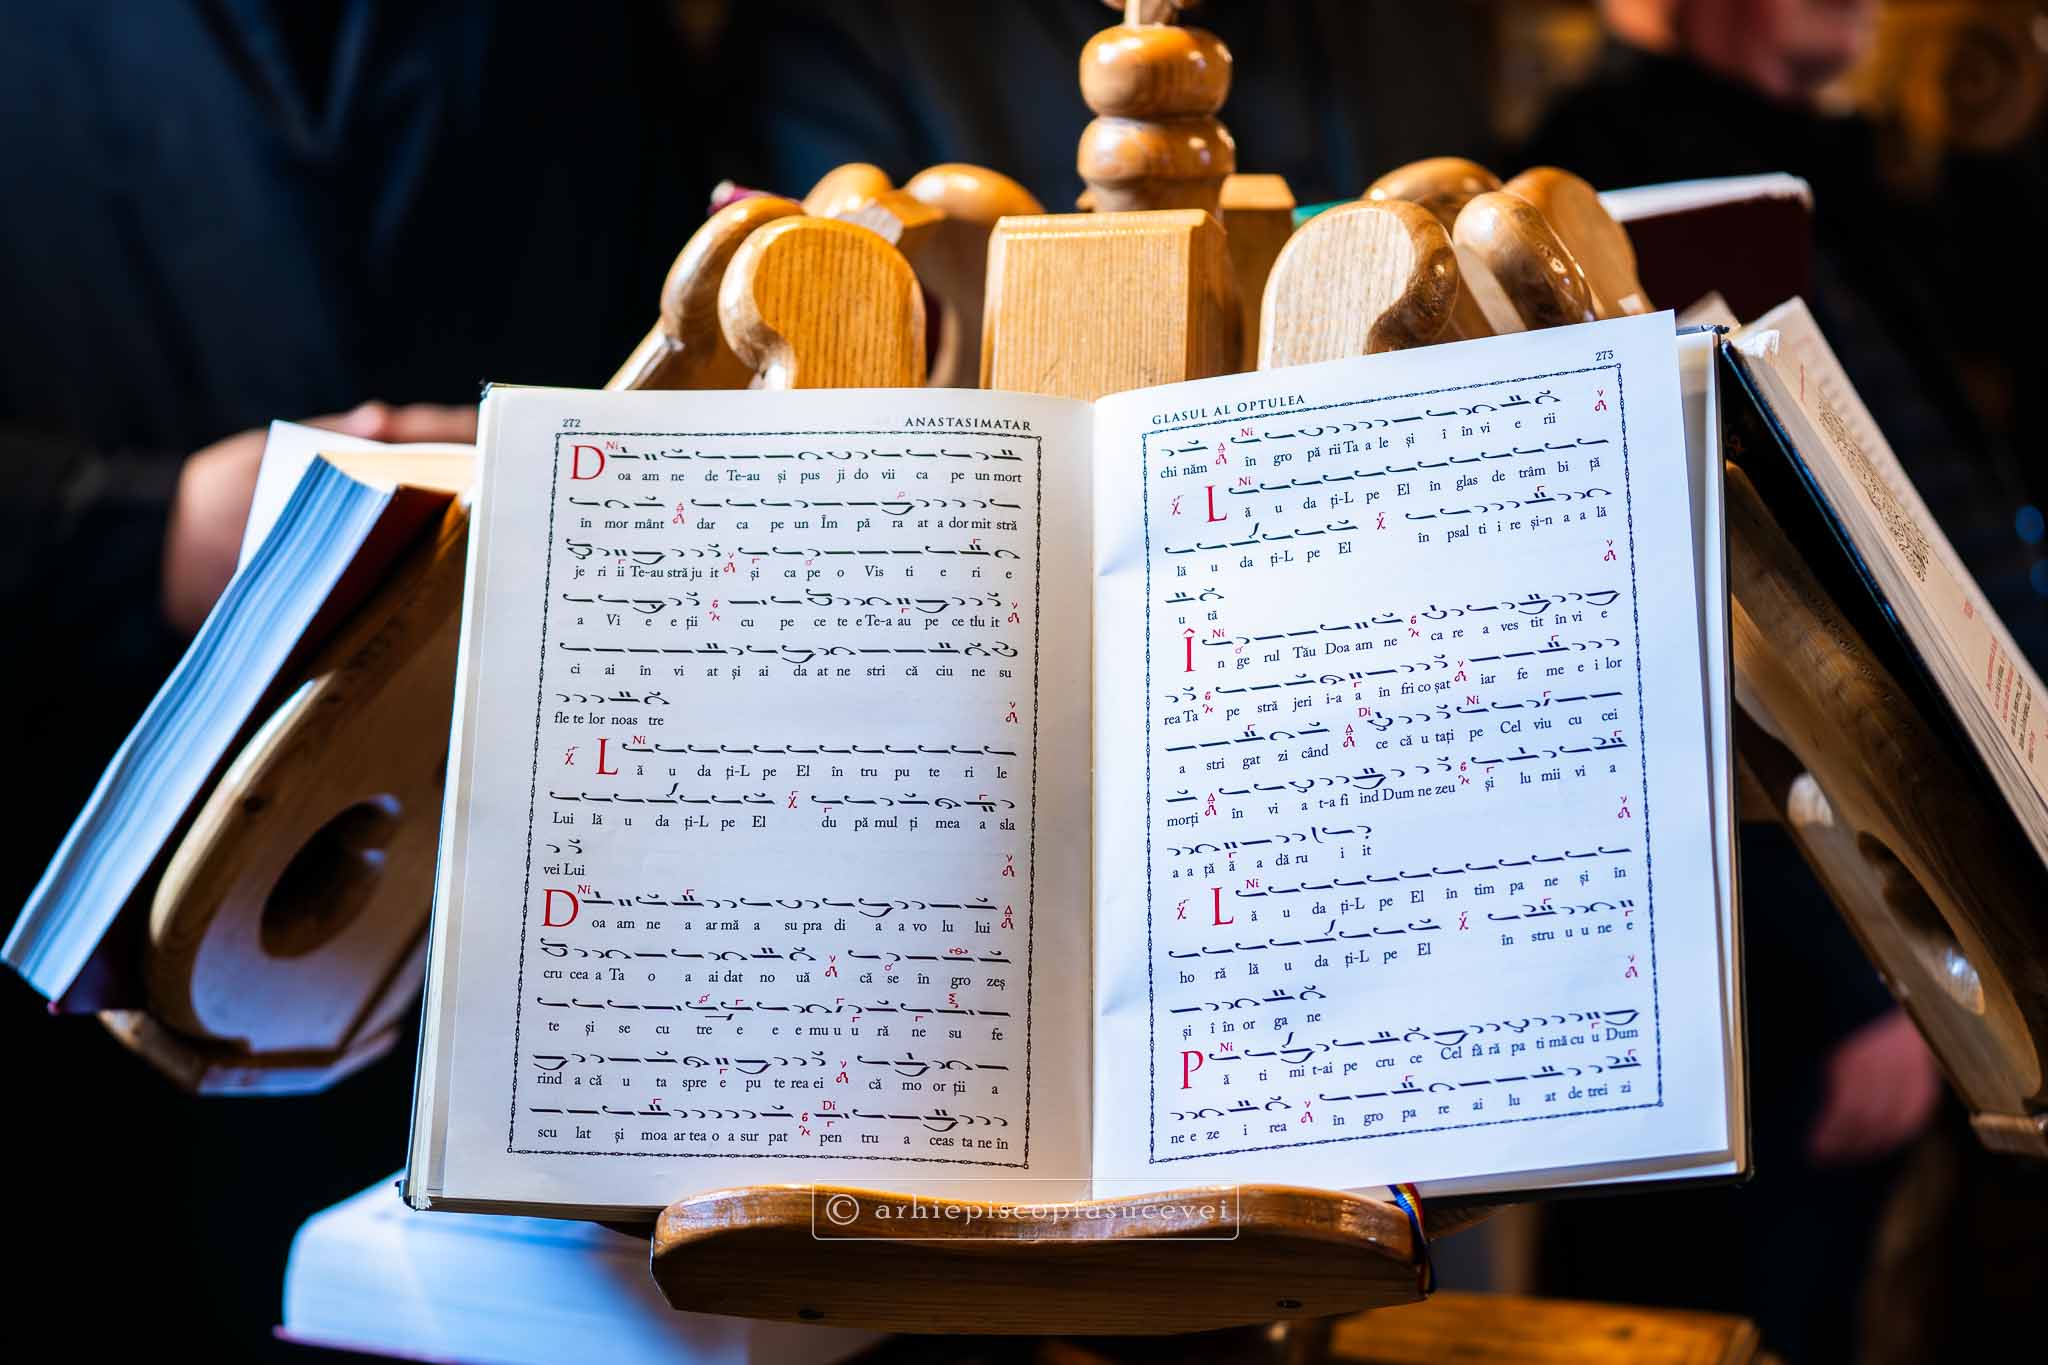 272
ANASTASIMATAR
Ni
Doa am ne de Te-au și pus ji do vii ca pe un mort
în mor mânt dar ca pe un Îm pă ra at a dor mit stră
je ri ii Te-au stră ju it și ca pe o Vis ti e ri e
a Vi e e ții cu pe ce te e Te-a au pe ce tlu it
ci ai în vi at și ai da at ne stri că ciu ne su
fle te lor noas tre
Ni
Lă u da ți-L pe El în tru pu te ri le
Lui lă u da ți-L pe El du pă mul ți mea a sla
vei Lui
Ni
Doa am ne a ar mă a su pra di a a vo lu lui
cru cea a Ta o a ai dat no uă că se în gro zeș
te și se cu tre e e e mu u u ră ne su fe
rind a că u ta spre e pu te rea ei că mo or ții a
Di
scu lat și moa ar tea o a sur pat pen tru a ceas ta ne în
GLASUL AL OPTULEA
273
Ni
chi năm în gro pă rii Ta a le și î în vi e rii
Ni
Lă u da ți-L pe El în glas de trâm bi ță
lă u da ți-L pe El în psal ti i re și-n a a lă
u tă
Ni
În ge rul Tău Doa am ne ca re a ves tit în vi e
rea Ta pe stră jeri i-a a în fri co șat iar fe me e i lor
Di Ni
a stri gat zi când ce că u tați pe Cel viu cu cei
morți în vi a t-a fi ind Dum ne zeu și lu mii vi a
a a ță ă a dă ru i it
Ni
Lă u da ți-L pe El în tim pa ne și în
ho ră lă u da ți-L pe El în stru u u ne e
și î în or ga ne
Ni
Pă ti mi t-ai pe cru ce Cel fă ră pa ti mă cu u Dum
ne e ze i rea în gro pa re ai lu at de trei zi
© arhiepiscopiasucevei